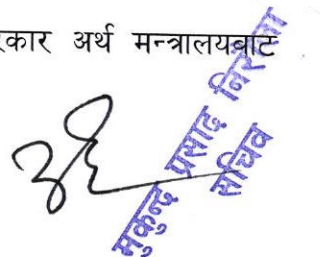 रकार अर्थ मन्त्रालयबाट
मुकुन्द प्रसाद निरौला
सचिव